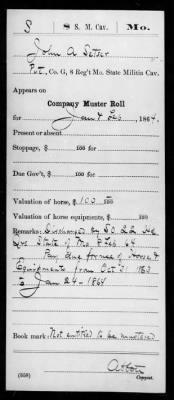 S 8 S. M. Cav. Mo.
John A Setser
Pvt., Co. G, 8 Reg't Mo. State Militia Cav.
Appears on
Company Muster Roll
for Jan & Feb, 1864.
Present or absent
Stoppage, $ 100 for
Due Gov't, $ 100 for
Valuation of horse, $ 100
Valuation of horse equipments, $ 100
Remarks: Discharged by S.O.
State of Mo Feb 64
Pay due for use of Horse &
Equipments from Oct 31 1863
to Jany 24 - 1864
Book mark: Not entitled to be mustered
Abbott
(858) Copyist.